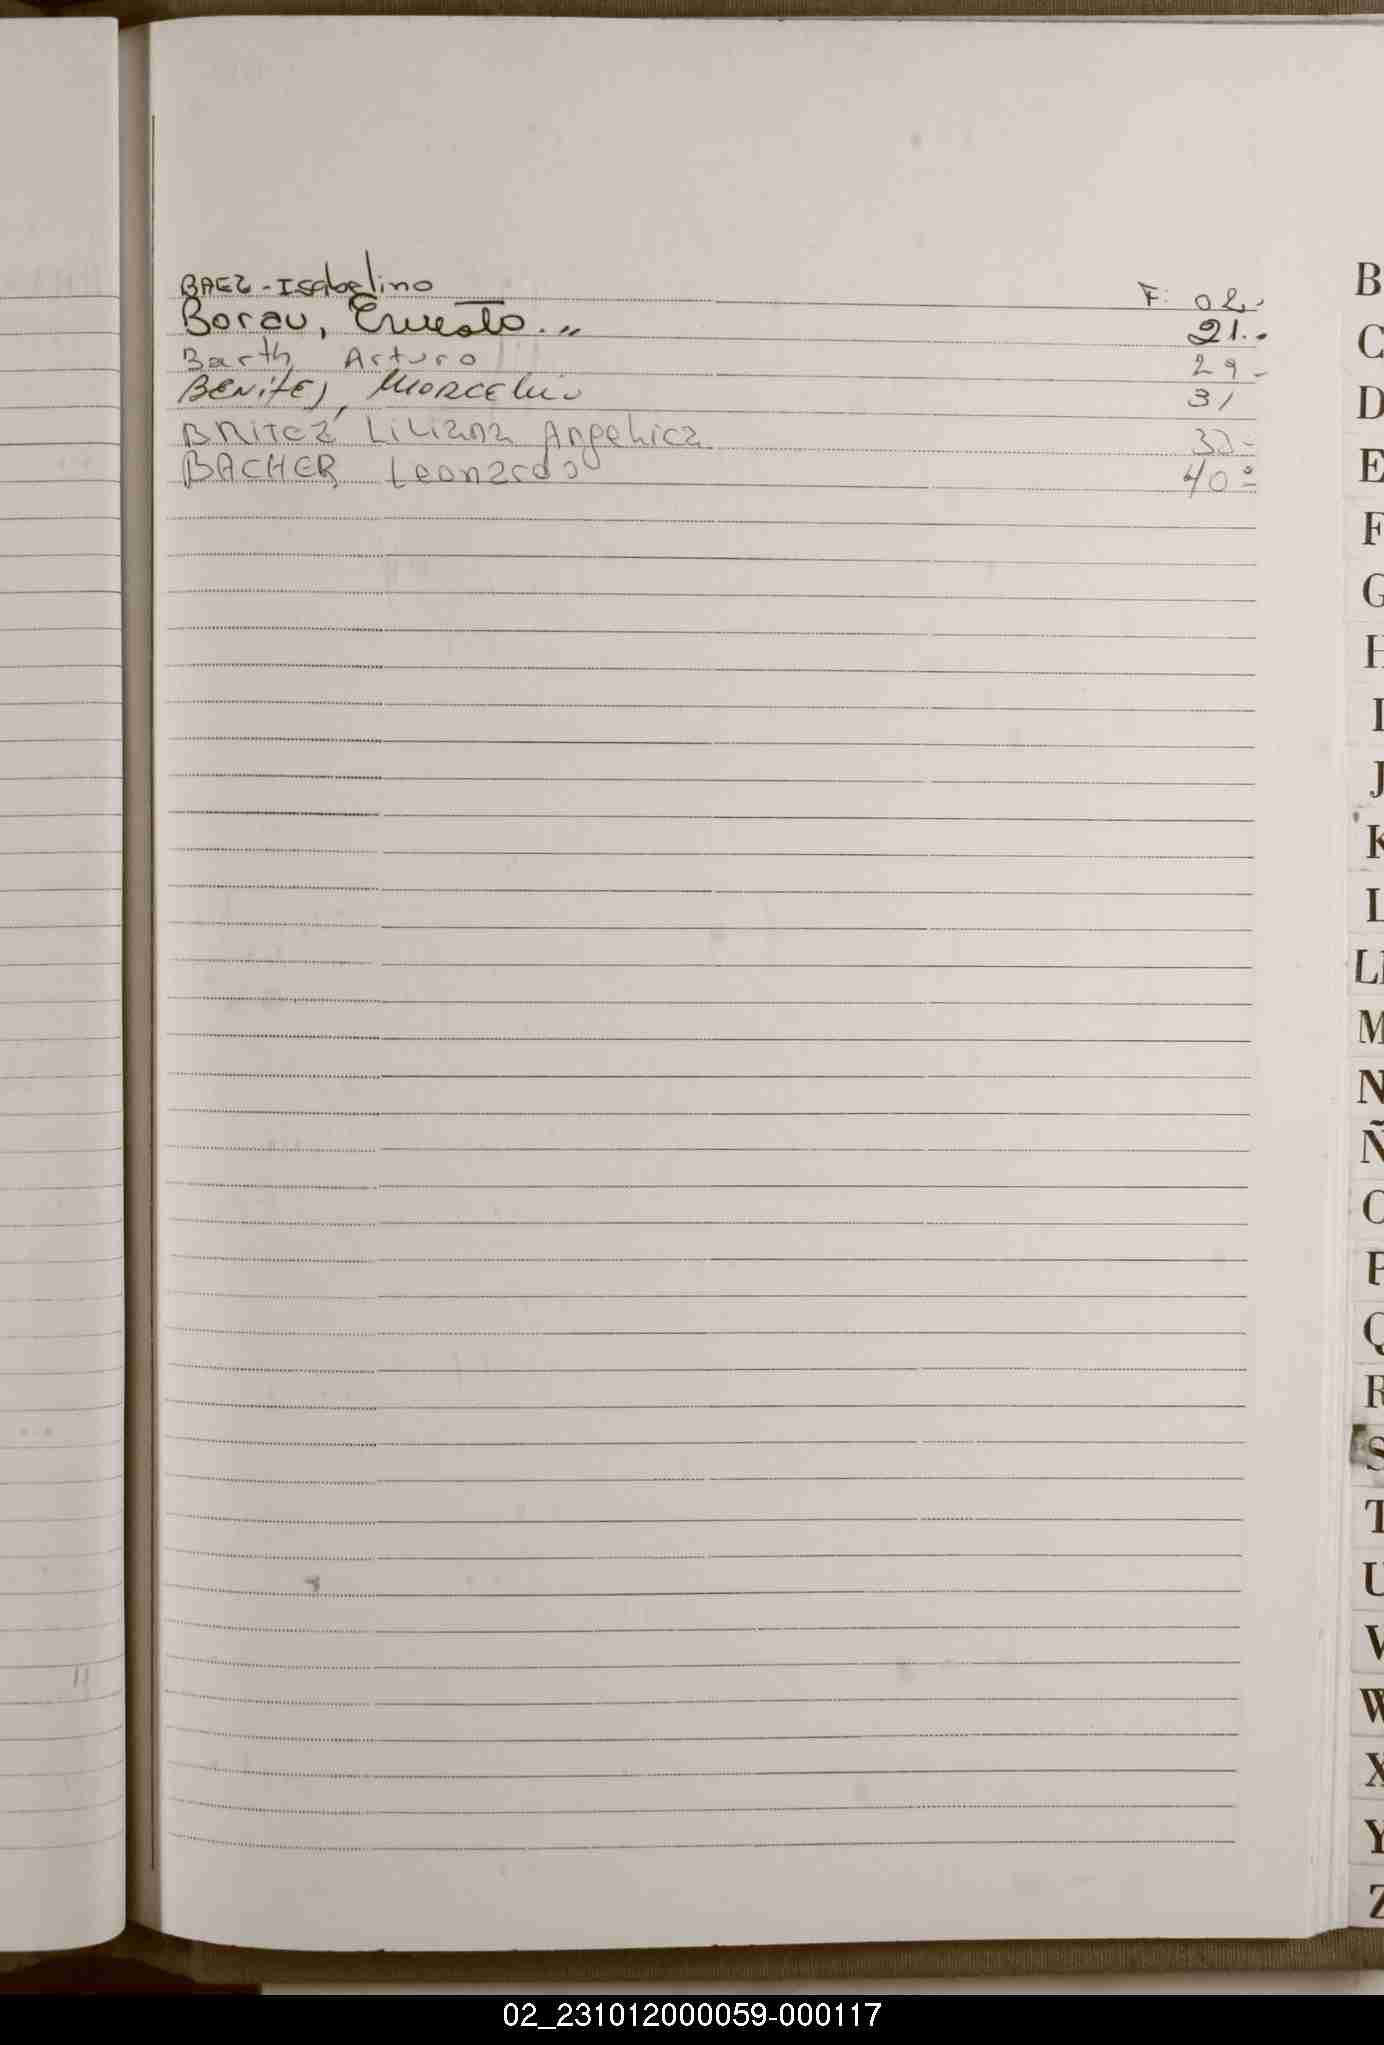 BAEZ - Isabelino F: 02.-
Borau, Ernesto.,, 21.-
Barth Arturo 29-
BENITEZ, MARCELINO 31
BRITEZ Liliana Angelica 33-
BACHER Leonardo 40-
B
C
D
E
F
G
H
I
J
K
L
LL
M
N
Ñ
O
P
Q
R
S
T
U
V
W
X
Y
Z
02_231012000059-000117